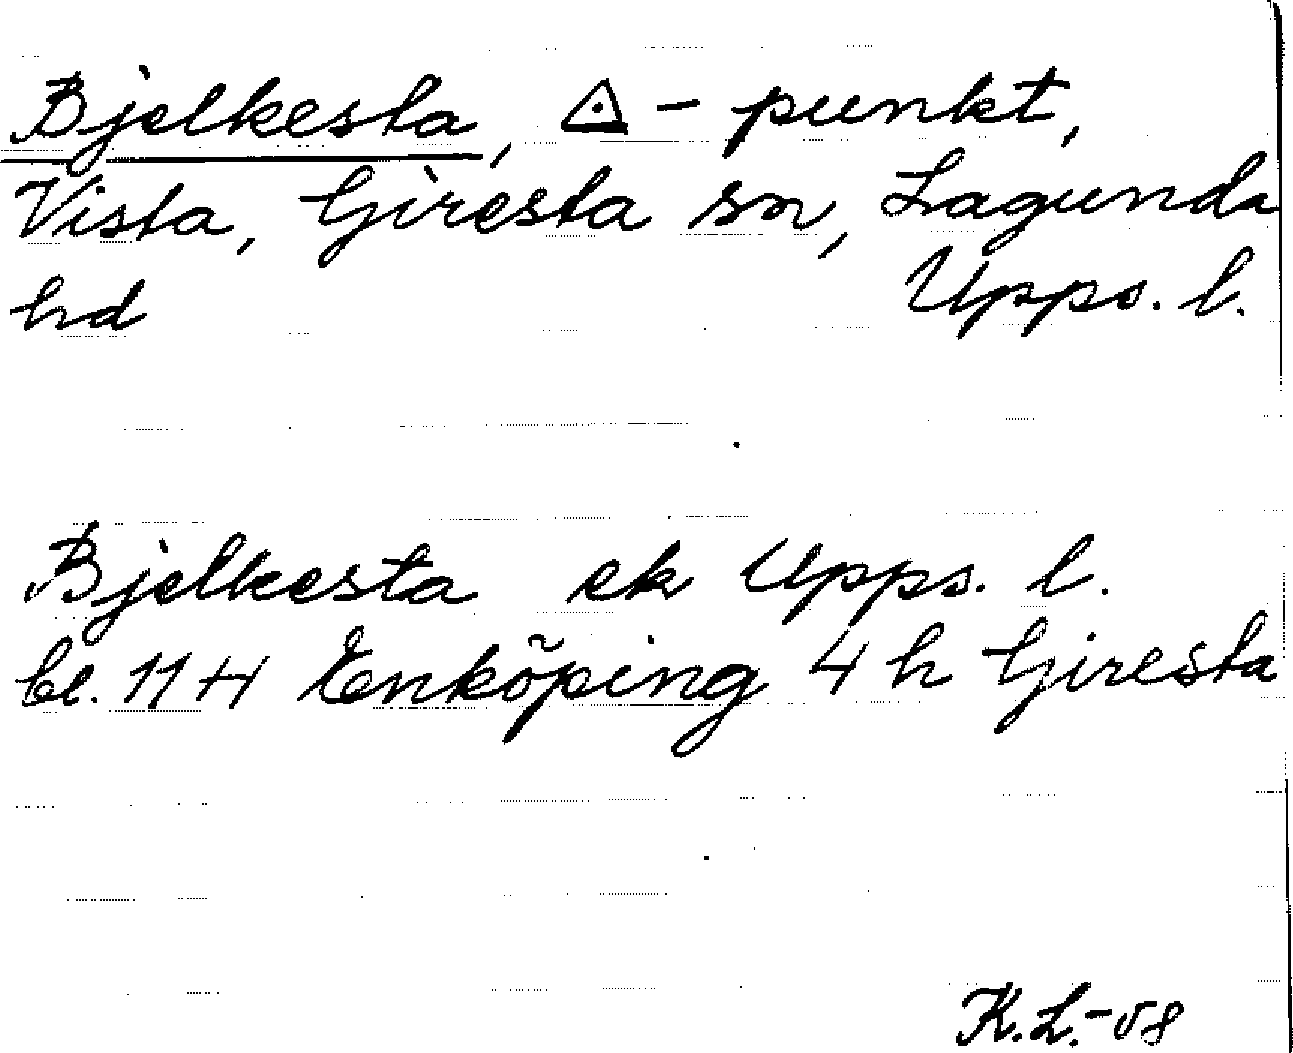 Bjelkesta, △ - punkt,
Vista, Giresta sn, Lagunda
hd Upps. l.
Bjelkesta ek Upps. l.
bl. 11 H Enköping 4 h Giresta
K.L.-58